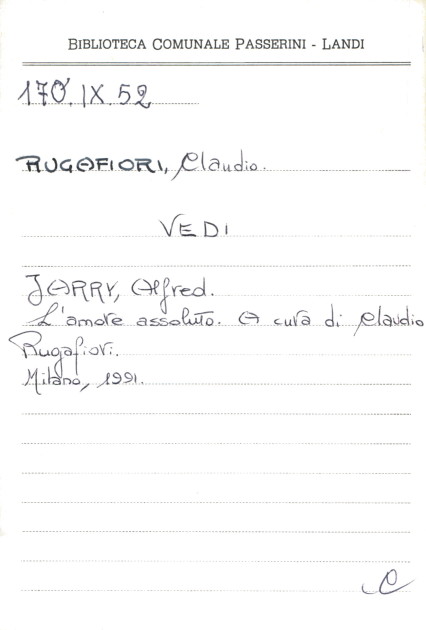 BIBLIOTECA COMUNALE PASSERINI - LANDI
170.IX.52
RUGAFIORI, Claudio.
VEDI
JARRY, Alfred.
L'amore assoluto. A cura di Claudio
Rugafiori.
Milano, 1991.